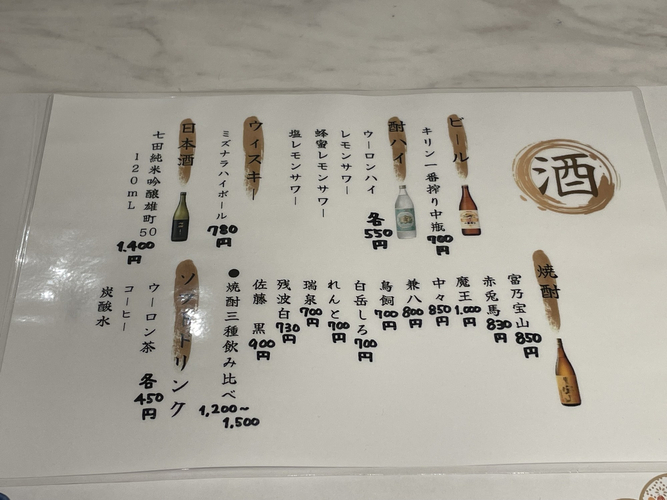 酒
ビール
キリン一番搾り中瓶 700円
酎ハイ
ウーロンハイ
レモンサワー
蜂蜜レモンサワー
塩レモンサワー
各550円
ウィスキー
ミズナラハイボール 780円
日本酒
七田純米吟醸雄町50
120mL
1,400円
焼酎
富乃宝山 850円
赤兎馬 830円
魔王 1,000円
中々 850円
兼八 800円
鳥飼 700円
白岳しろ 700円
れんと 700円
瑞泉 700円
残波白 730円
佐藤 黒 900円
●焼酎三種飲み比べ
1,200~1,500
ソフトドリンク
ウーロン茶
コーヒー
炭酸水
各450円